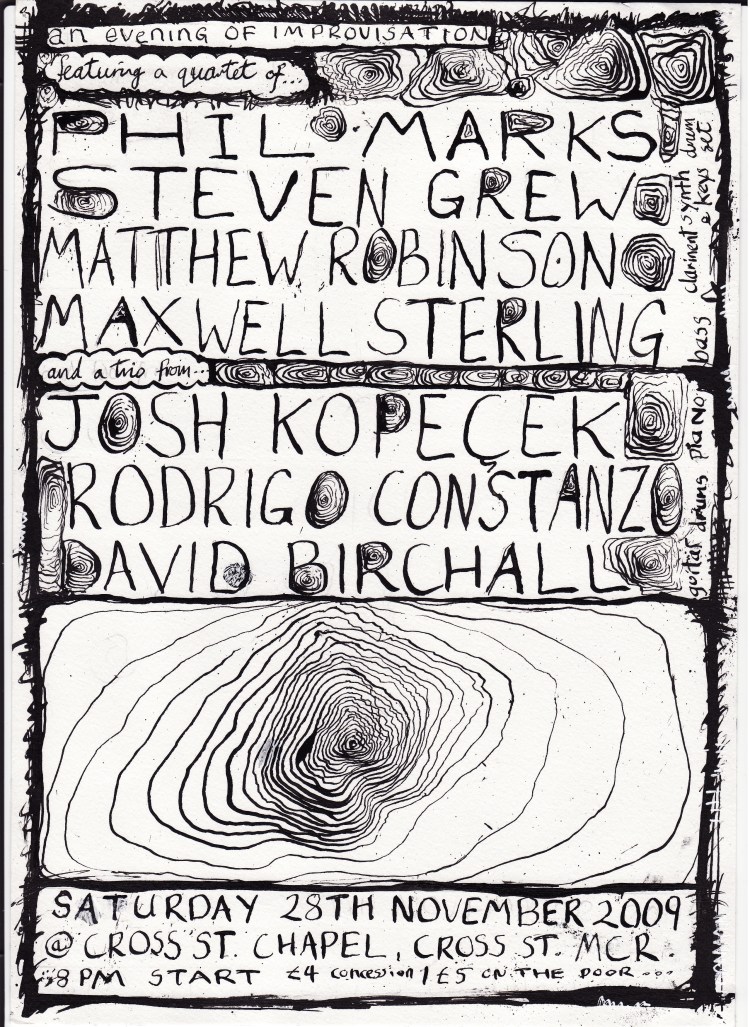 an evening OF IMPROVISATION
featuring a quartet of...
PHIL MARKS
drum set
STEVEN GREW
synth & keys
MATTHEW ROBINSON
clariment
MAXWELL STERLING
bass
and a trio from...
JOSH KOPEÇEK
piano
RODRIGO CONSTANZO
drums
DAVID BIRCHALL
guitar
SATURDAY 28TH NOVEMBER 2009
@ CROSS ST. CHAPEL, CROSS ST. MCR.
8 PM START £4 concession / £5 ON THE DOOR...